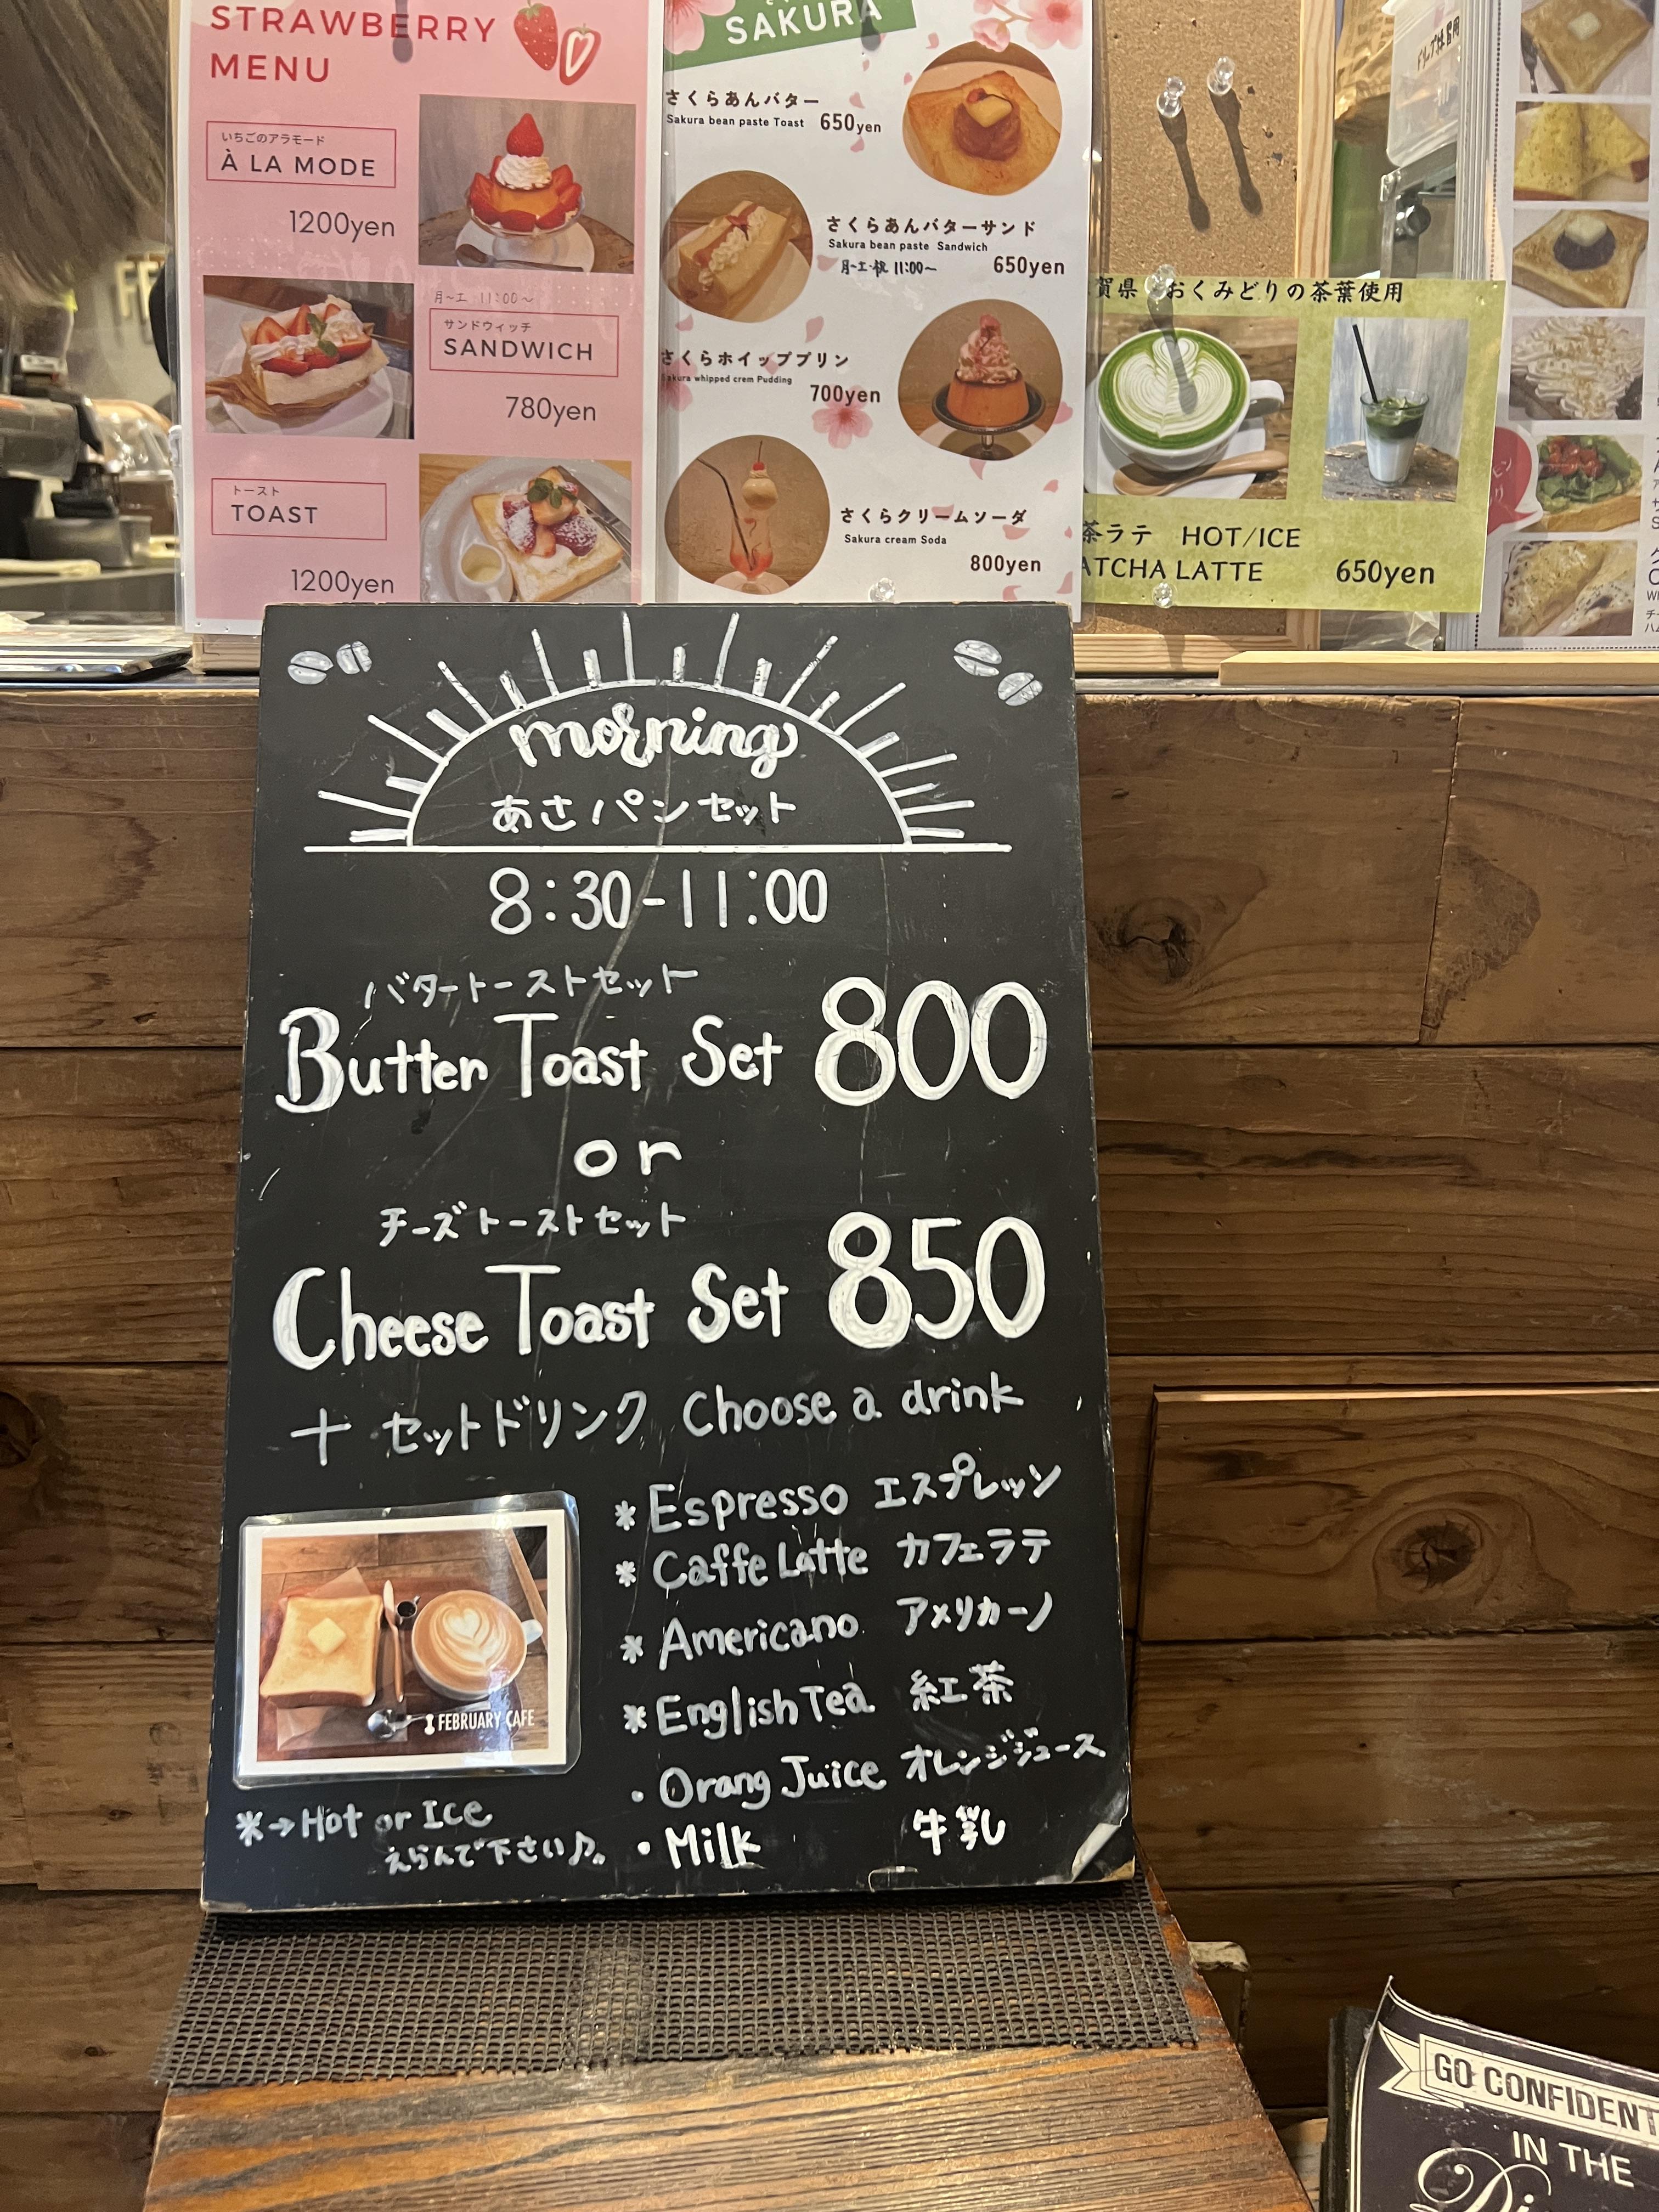 STRAWBERRY
MENU
いちごのアラモード
À LA MODE
1200yen
月~土 11:00~
サンドウィッチ
SANDWICH
780yen
トースト
TOAST
1200yen
SAKURA
さくらあんバター
Sakura bean paste Toast 650yen
さくらあんバターサンド
Sakura bean paste Sandwich
月~土・祝 11:00~ 650yen
さくらホイッププリン
Sakura whipped crem Pudding
700yen
さくらクリームソーダ
Sakura cream Soda
800yen
賀県 おくみどりの茶葉使用
茶ラテ HOT/ICE
ATCHA LATTE 650yen
morning
あさパンセット
8:30-11:00
バタートーストセット
Butter Toast Set 800
or
チーズトーストセット
Cheese Toast Set 850
+ セットドリンク Choose a drink
* Espresso エスプレッソ
* Caffe Latte カフェラテ
* Americano アメリカーノ
* English Tea 紅茶
・Orang Juice オレンジジュース
・Milk 牛乳
FEBRUARY CAFE
*→Hot or Ice
えらんで下さい♪。
GO CONFIDENT
IN THE